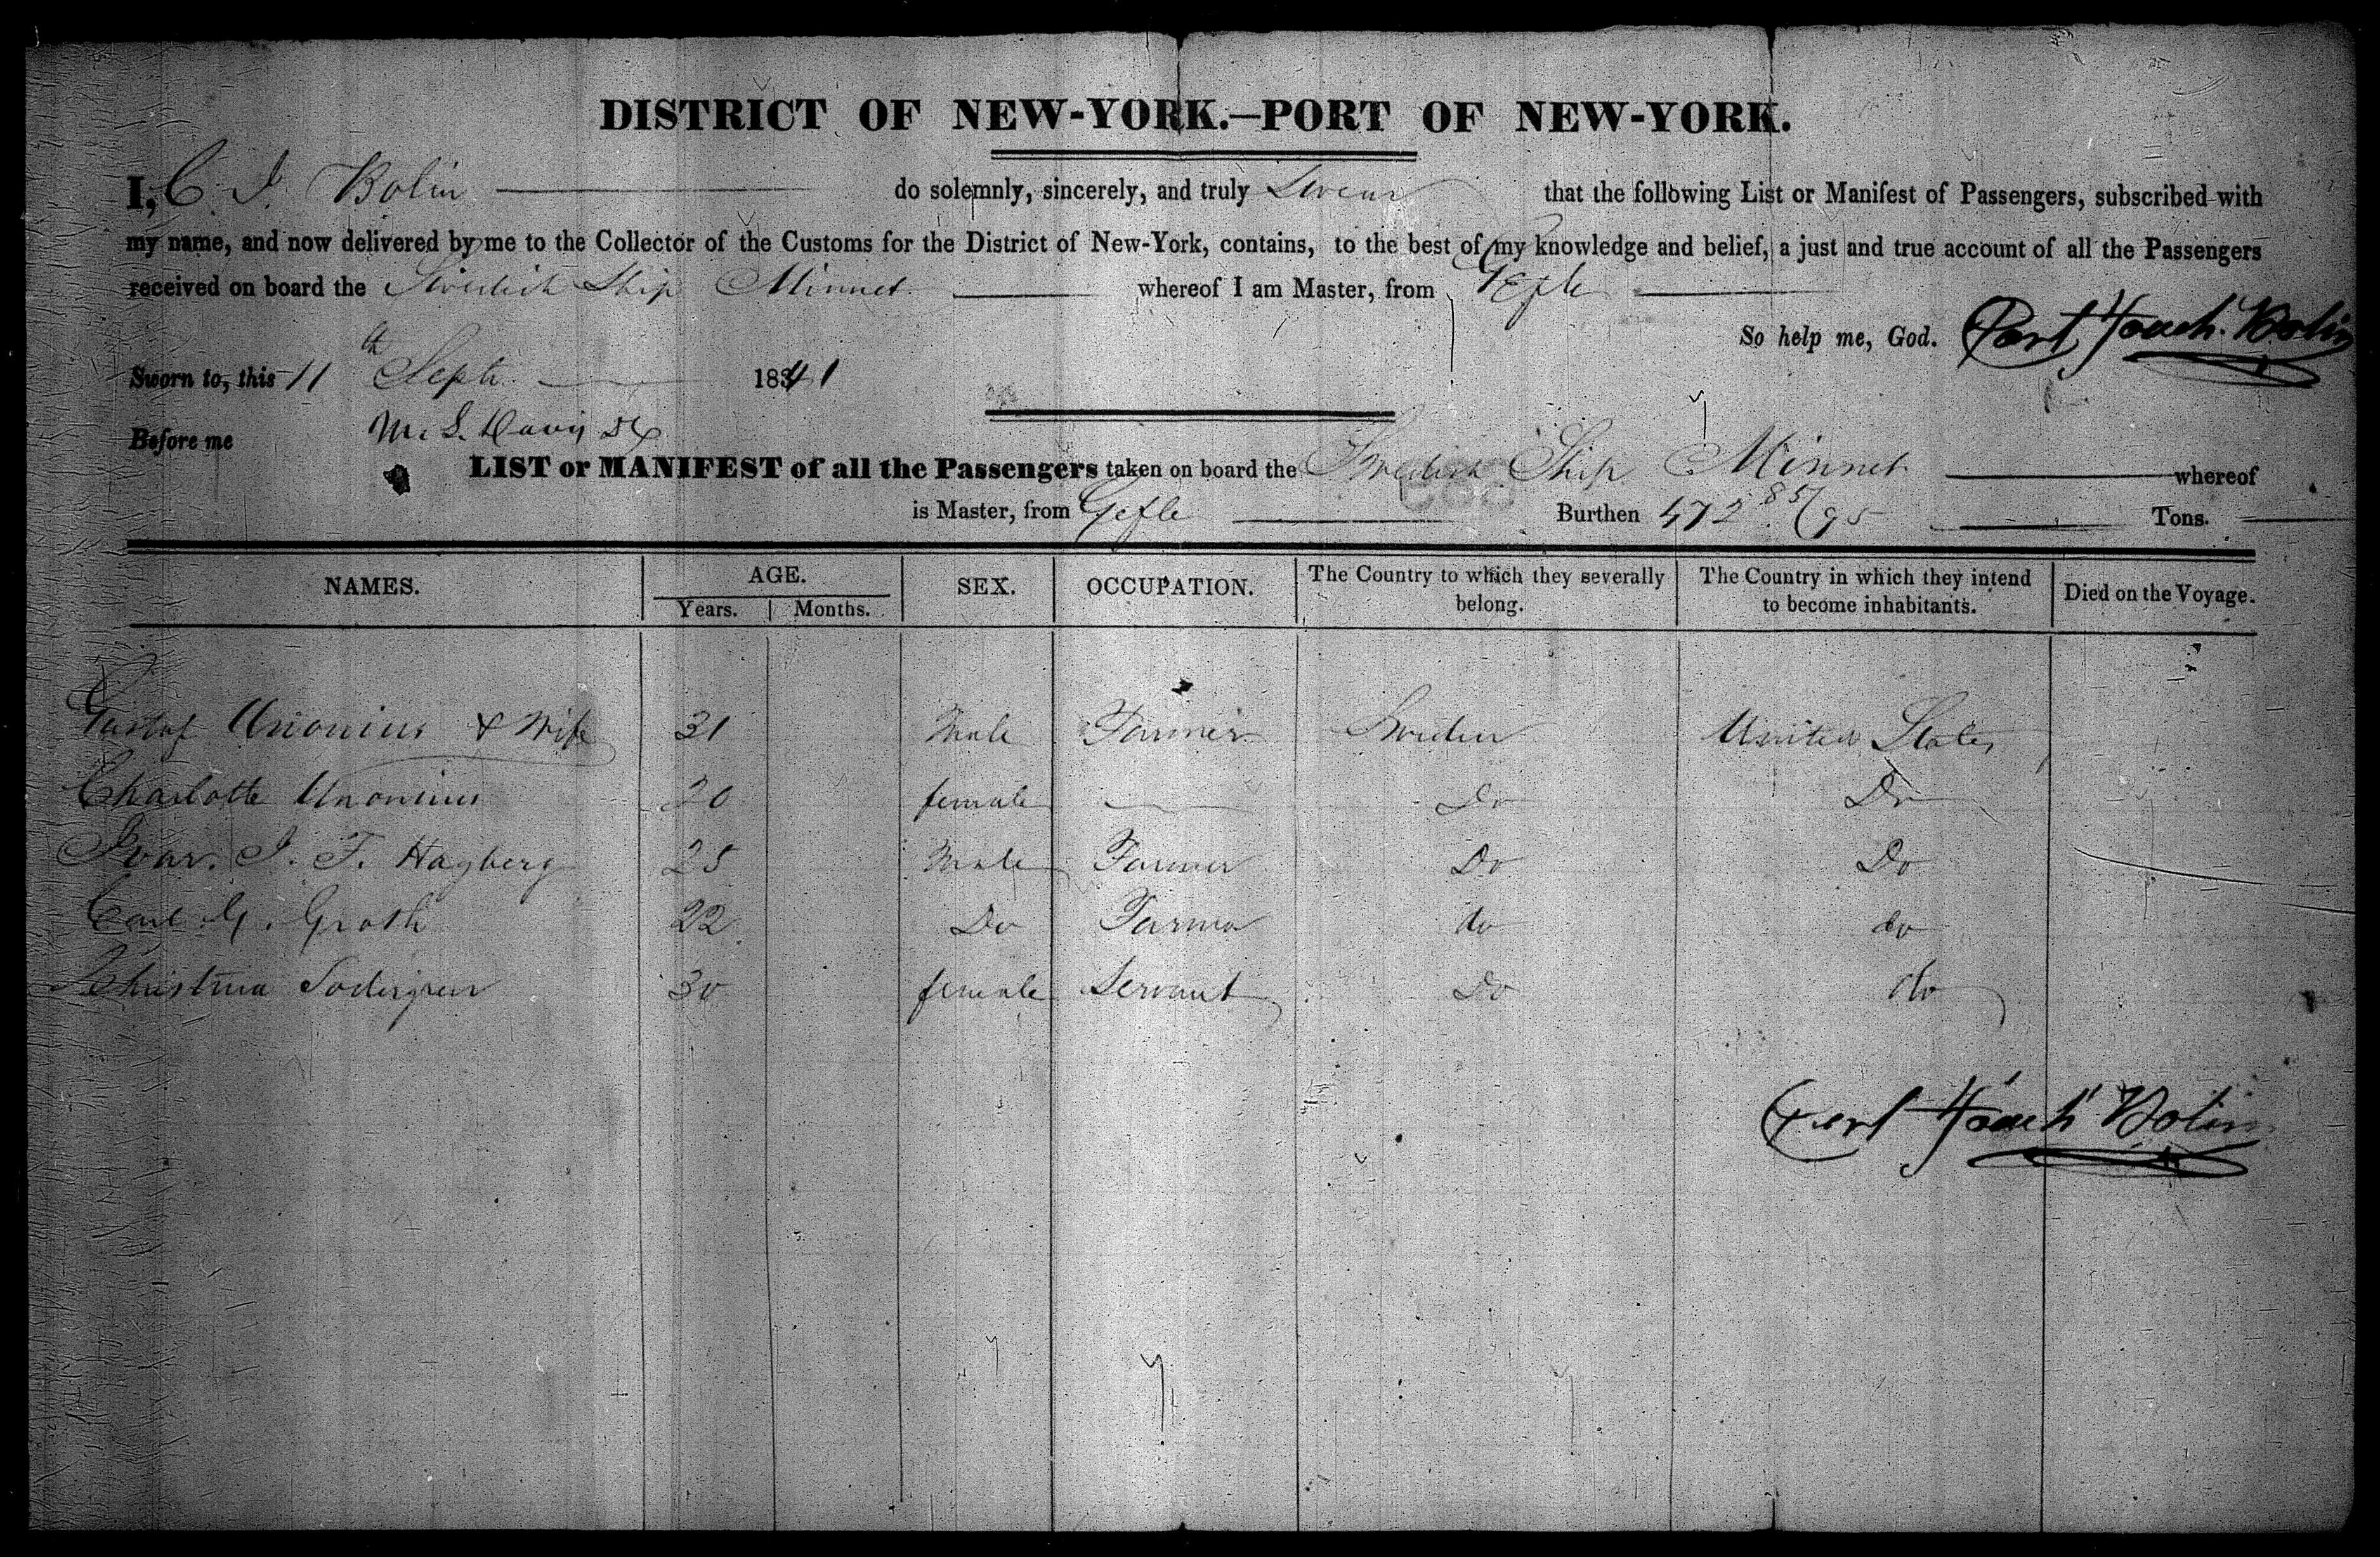 DISTRICT OF NEW-YORK.—PORT OF NEW-YORK.
I, C. J. Bolin do solemnly, sincerely, and truly Swear that the following List or Manifest of Passengers, subscribed with
my name, and now delivered by me to the Collector of the Customs for the District of New-York, contains, to the best of my knowledge and belief, a just and true account of all the Passengers
received on board the Swedish Ship Minnet whereof I am Master, from Gefle
So help me, God. Carl Joach. Bolin
Sworn to, this 11th Sept. 1841
Before me M. L. Davis
LIST or MANIFEST of all the Passengers taken on board the Swedish Ship Minnet whereof
is Master, from Gefle Burthen 472 85/95 Tons.
NAMES. AGE. SEX. OCCUPATION. The Country to which they severally belong. The Country in which they intend to become inhabitants. Died on the Voyage.
Years. Months.
Gustaf Unonius & Wife 31 Male Farmer Sweden United States
Charlotte Unonius 20 female — Do Do
Ivar. J. F. Hagberg 25 Male Farmer Do Do
Carl G. Groth 22 Do Farmer do do
Christina Södergren 30 female Servant Do do
Carl Joach Bolin